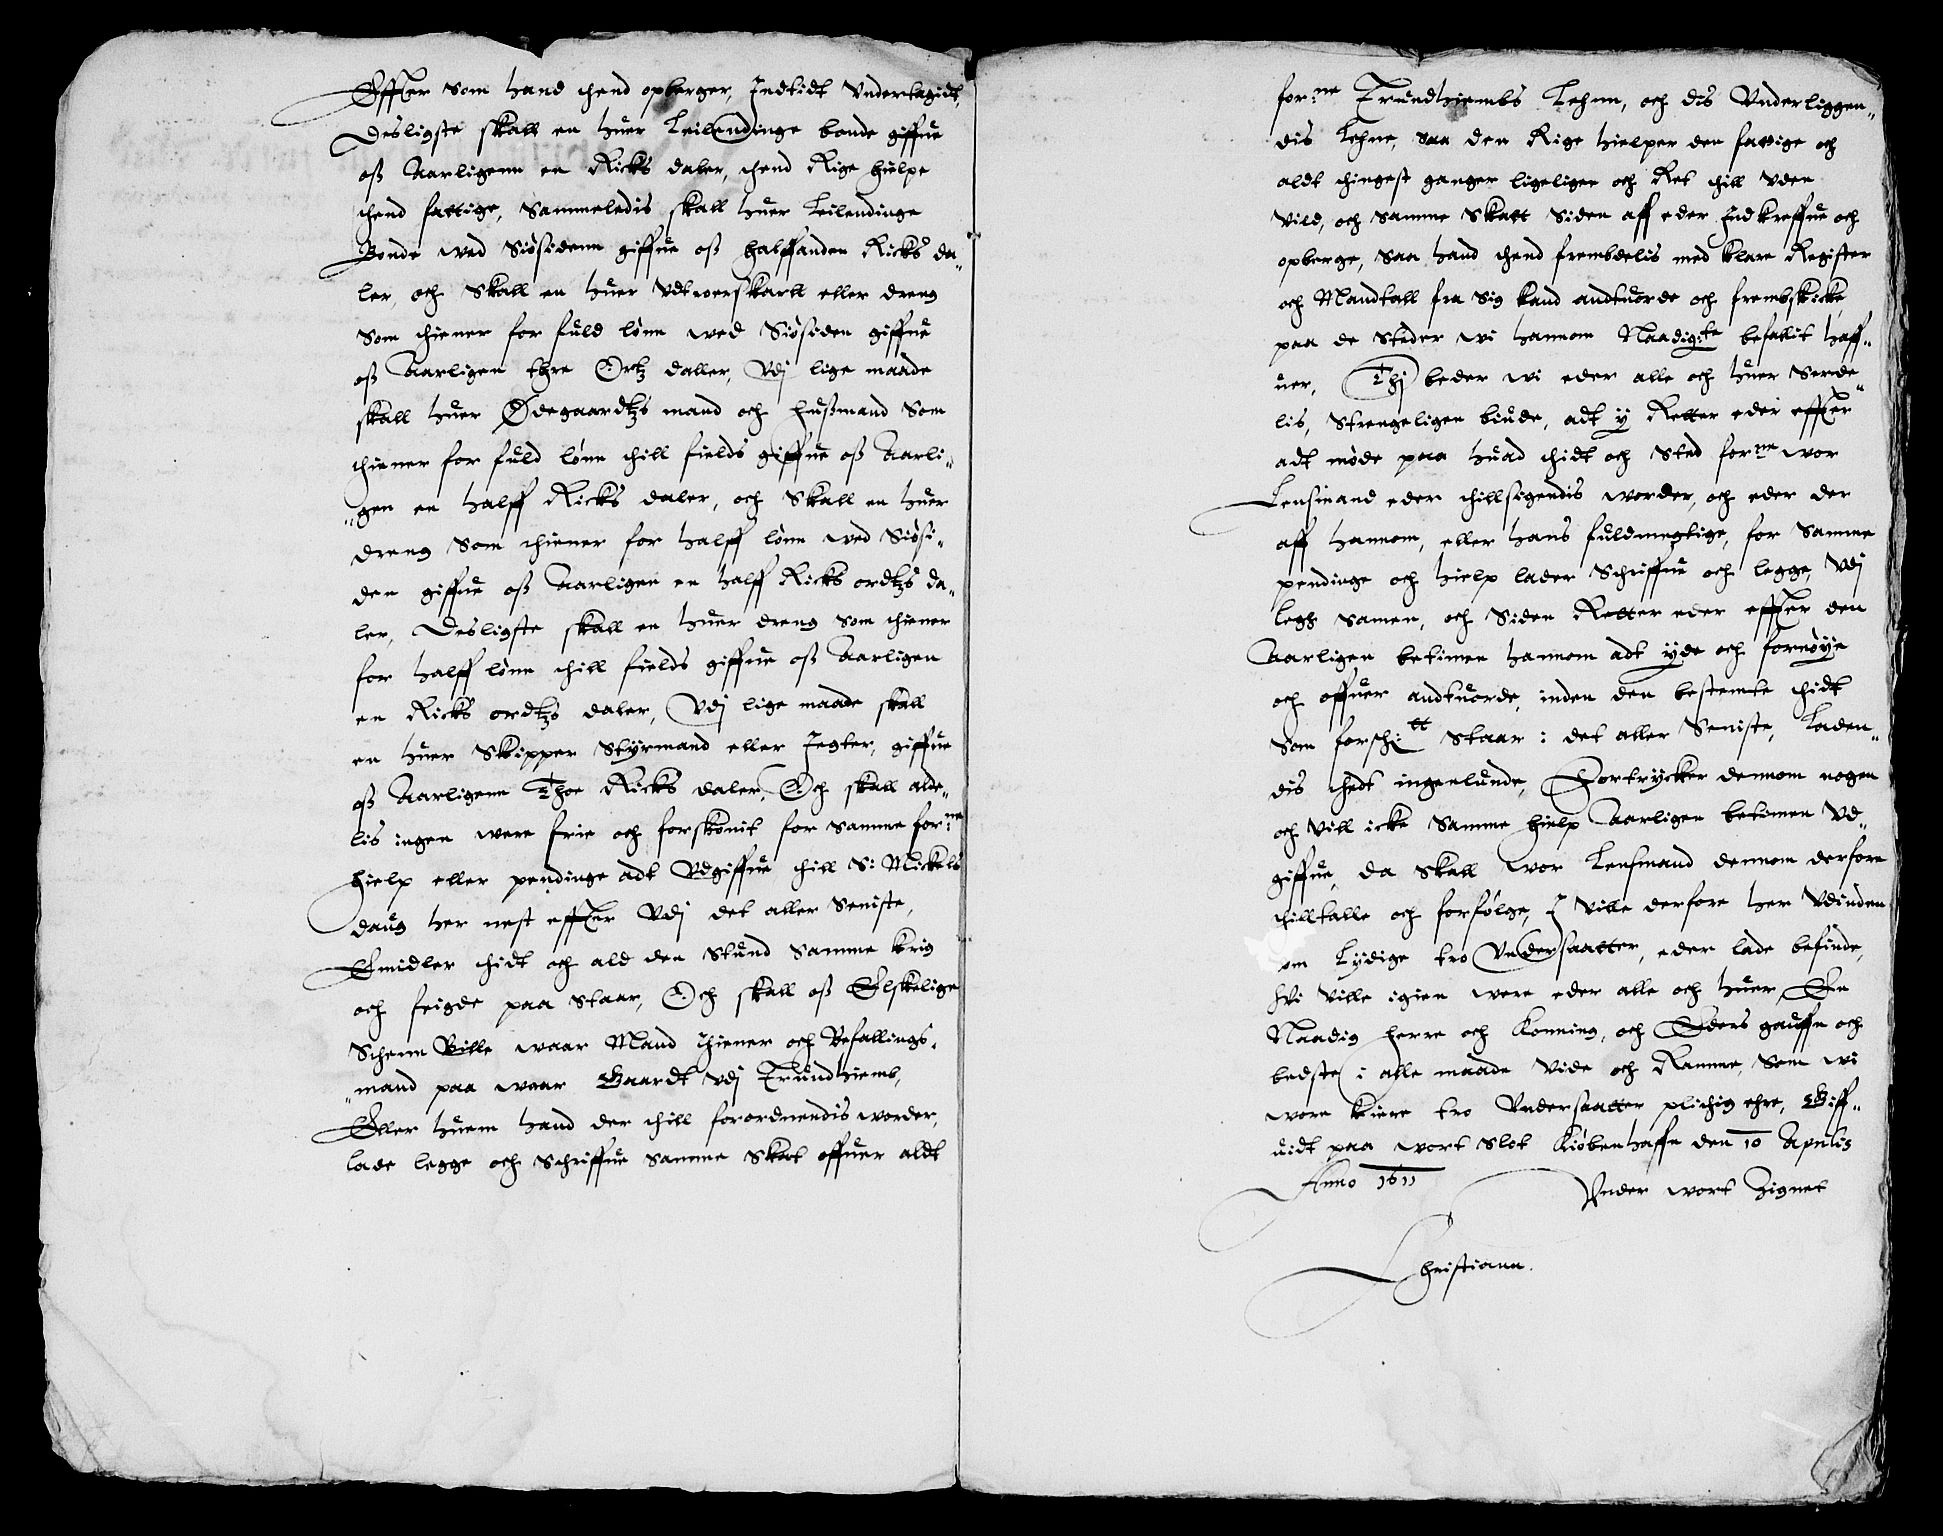 Effter som hand thend opberger, Indtidt Vndertagidt,
Desligste skall en huer Leilendinge bonde giffue
oß Aarligenn en Ricks daler, thend Rige hielpe
thend fattige, Sammeledis skall huer Leilendinge
Bonde wed Siøsidenn giffue oß halffanden Ricks da„
ler, och Skall en huer Vdtwerskarll eller dreng
som thiener for fuld lønn wed Siøsiden giffue
oß Aarligen thre Ortz daller, Vdj lige maade
skall huer Ødegaardtzs mand och hußmand Som
thiener for fuld lønn thill fields giffue oß Aarli„
„gen en halff Ricks daler, och Skall en huer
dreng Som thiener for halff lønn wed Siøsi„
den giffue oß Aarligen en halff Ricks ordtzs da„
ler, Desligste skall en huer dreng som thiener
for halff lønn thill fields giffue oß Aarligen
en Ricks ordtzs daler, Vdj lige maade skall
en huer Skipper Styrmand eller Jegter, giffue
oß Aarligenn Thoe Ricks daler, Och skall alde„
lis ingen were frie och forskonit for samme for:ne
hielp eller pendinge adt Vdgiffue thill S: Mickels
daug her nest effter Vdj det aller Seniste,
Emidler thidt och ald den Stund samme krig
och feigde paa staar, Och skall oß Elskelige
Schenn Bille waar Mand thiener och Befallings„
„mand paa waar Gaardt vdj Trundhiemb,
Eller huem hand der thill forordnendis worder,
lade legge och Schriffue samme Skat offuer aldt
for:ne Trundhiembs Lehnn, och dis Vnderliggen„
dis Lehne, saa den Rige hielper den fattige och
aldt thingest ganger ligeligen och Ret thill vden
vild, och samme Skatt Siden aff eder Indkreffue och
opberge, saa hand thend frembdelis med klare Register
och Mandtall fra sig kand andtuorde och frembskicke
paa de steder wi hannom Naadig:te befallit haff„
uer, Thj beder wi eder alle och huer Serde„
lis, Strengeligen biude, adt y Retter eder effter
adt møde paa huad thidt och Sted for:ne wor
Lensmand eder thillsigendis worder, och eder der
aff hannom, eller hans fuldmegtige, for Samme
pendinge och hielp lader Schriffue och legge, Vdj
legs samen, och Siden Retter eder effter den
Aarligen betimen hannom adt yde och fornøye
och offuer andtuorde, inden den bestemte thidt
som forsch:tt staar i det aller Seniste, Laden„
dis thedt ingenlunde, Fortrycker dennom nogen
och vill icke Samme hielp Aarligen betimen Vd„
giffue, da skall wor Lensmand dennom derfore
thilltalle och forfølge, I ville derfore her vdinden
som Lydige tro Vndersaatter, eder lade befinde,
Wi ville igien were eder alle och huer, En
Naadig herre och Konning, och Eders gauffn och
bedste i alle maade vide och Ramme, Som wi
wore kiere tro Vndersaatter plichtig ehre, Giff„
uidt paa wort Slot Kiøbenhaffn den 10 Aprilis
Anno 1611
Vnder wort Zignet
Christiann.